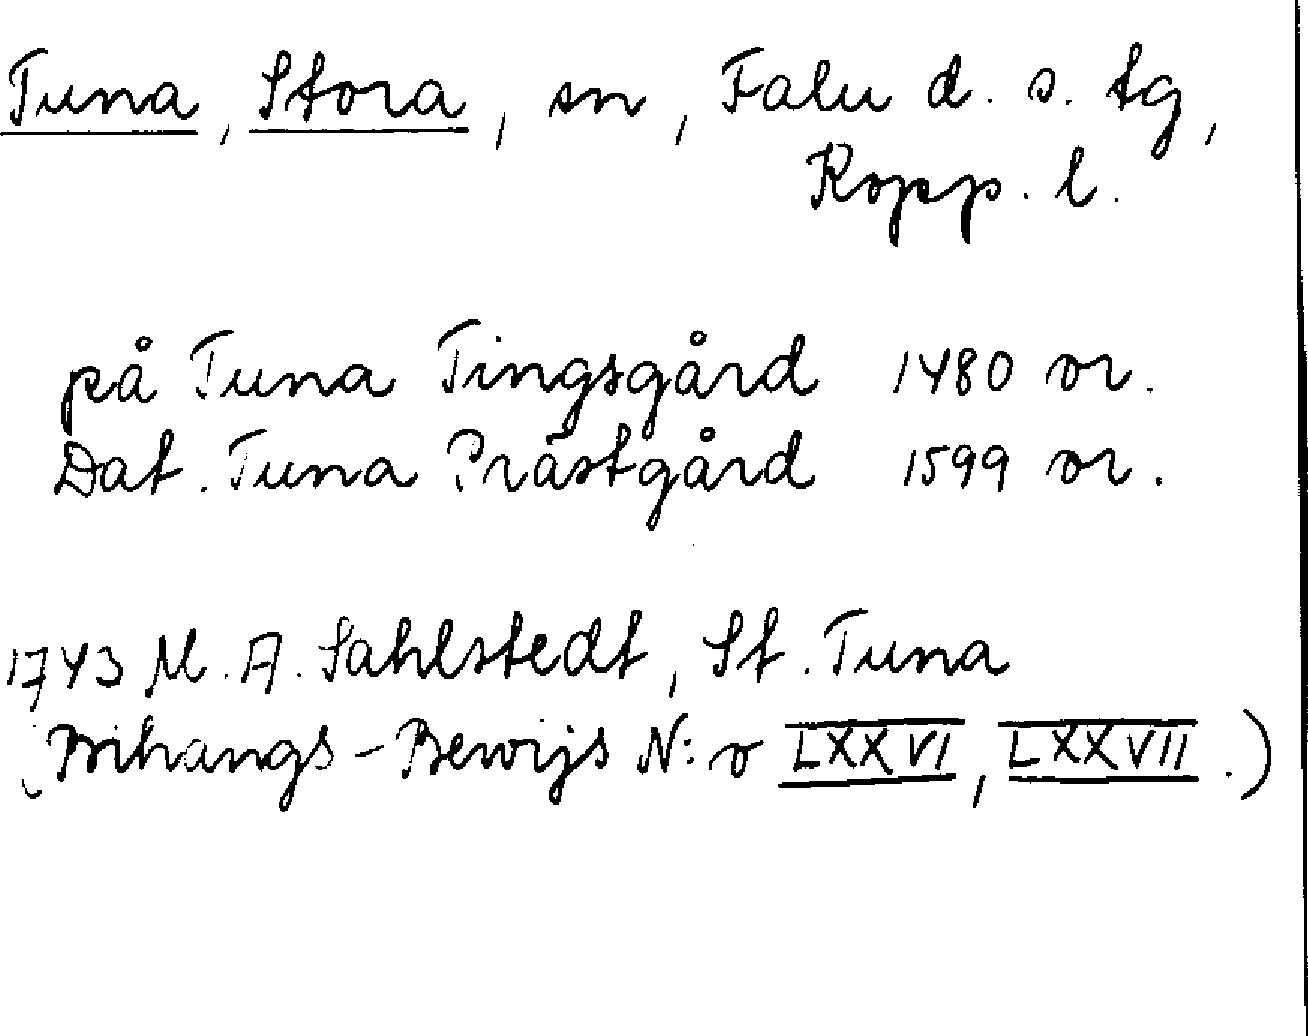 Tuna, Stora, sn, Falu d. s. tg,
Kopp. l.
på Tuna Tingsgård 1480 or.
Dat. Tuna Prästgård 1599 or.
1743 M. A. Sahlstedt, St. Tuna
(Bihangs-Bewijs N:o LXXVI, LXXVII.)